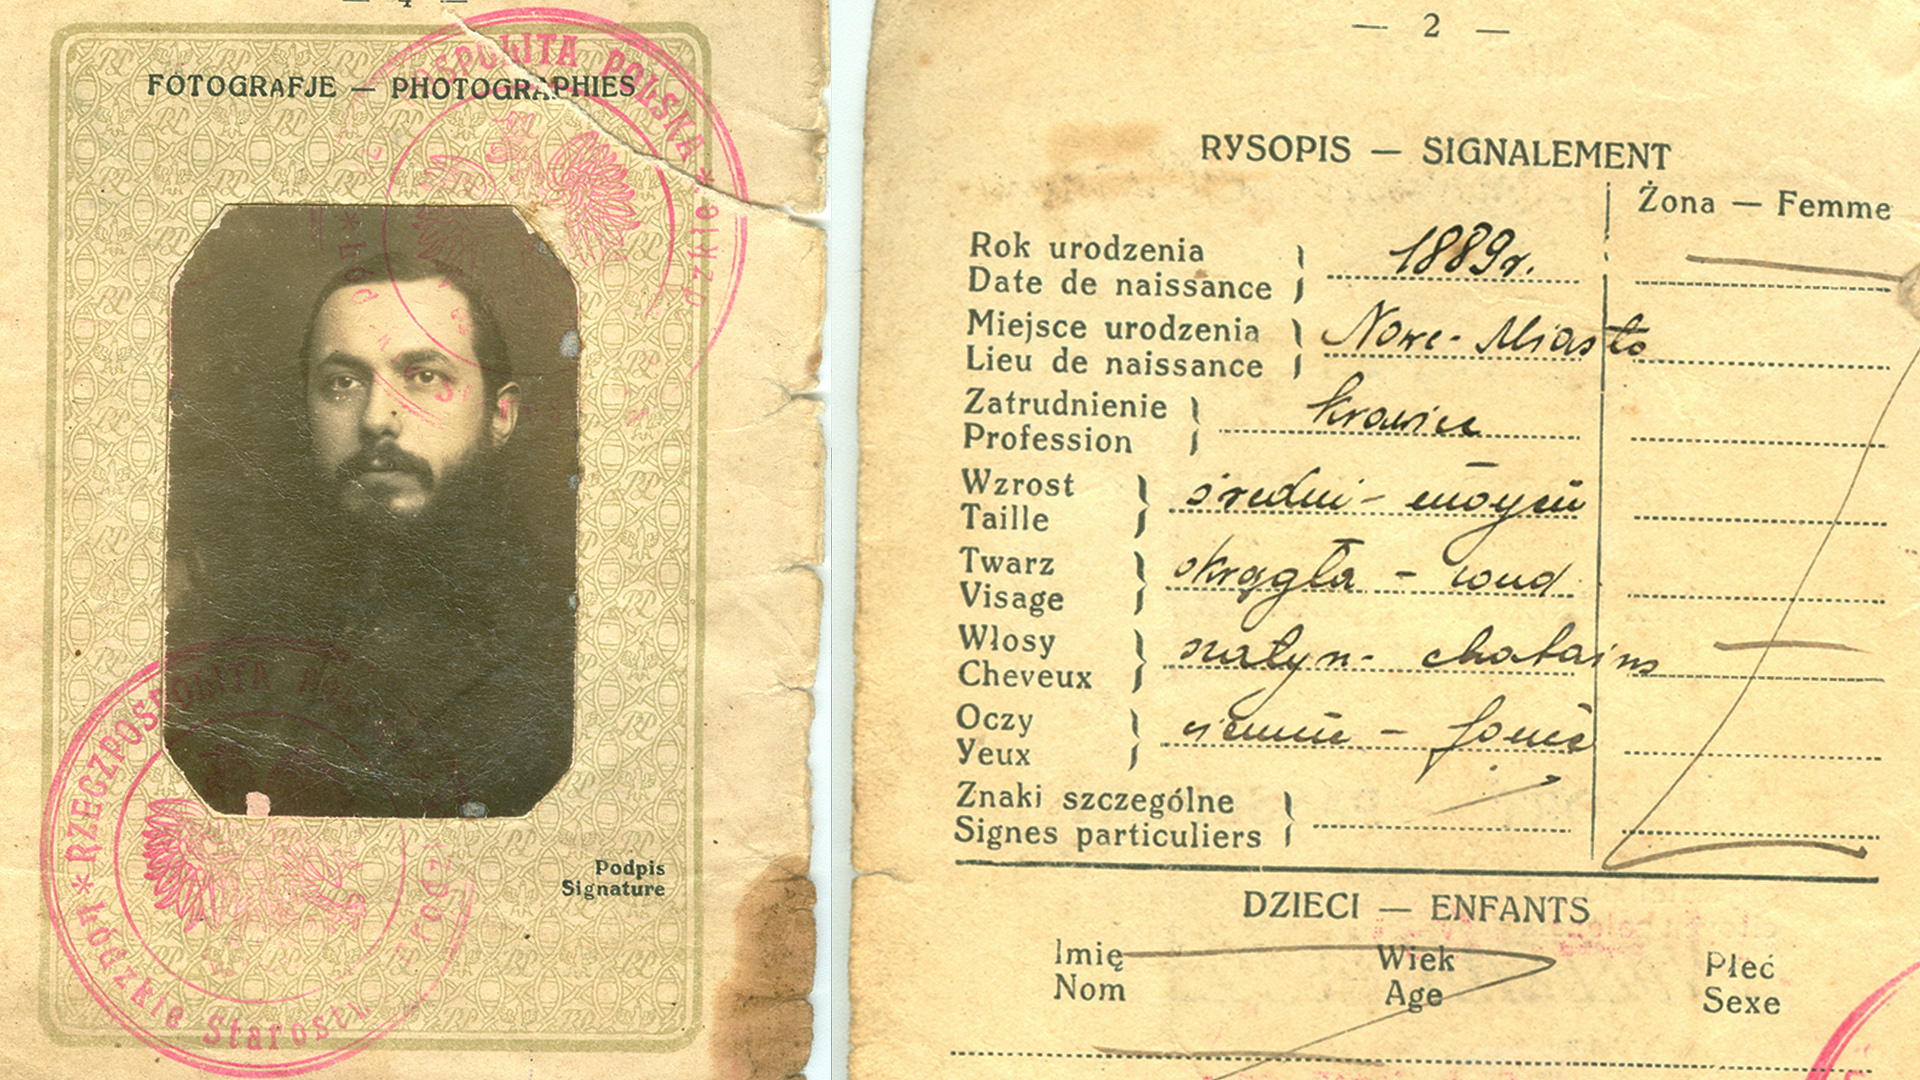 — 4 —
FOTOGRAFJE — PHOTOGRAPHIES
RZECZPOSPOLITA POLSKA * Łódzkie
* RZECZPOSPOLITA
* Łódzkie Starost
Podpis
Signature
— 2 —
RYSOPIS — SIGNALEMENT
Żona — Femme
Rok urodzenia
Date de naissance
1889 r.
Miejsce urodzenia
Lieu de naissance
Nowe-Miasto
Zatrudnienie
Profession
krawiec
Wzrost
Taille
średni - moyen
Twarz
Visage
okrągła - rond
Włosy
Cheveux
szatyn - chatains
Oczy
Yeux
ciemne - foncé
Znaki szczególne
Signes particuliers
DZIECI — ENFANTS
Imię Wiek Płeć
Nom Age Sexe